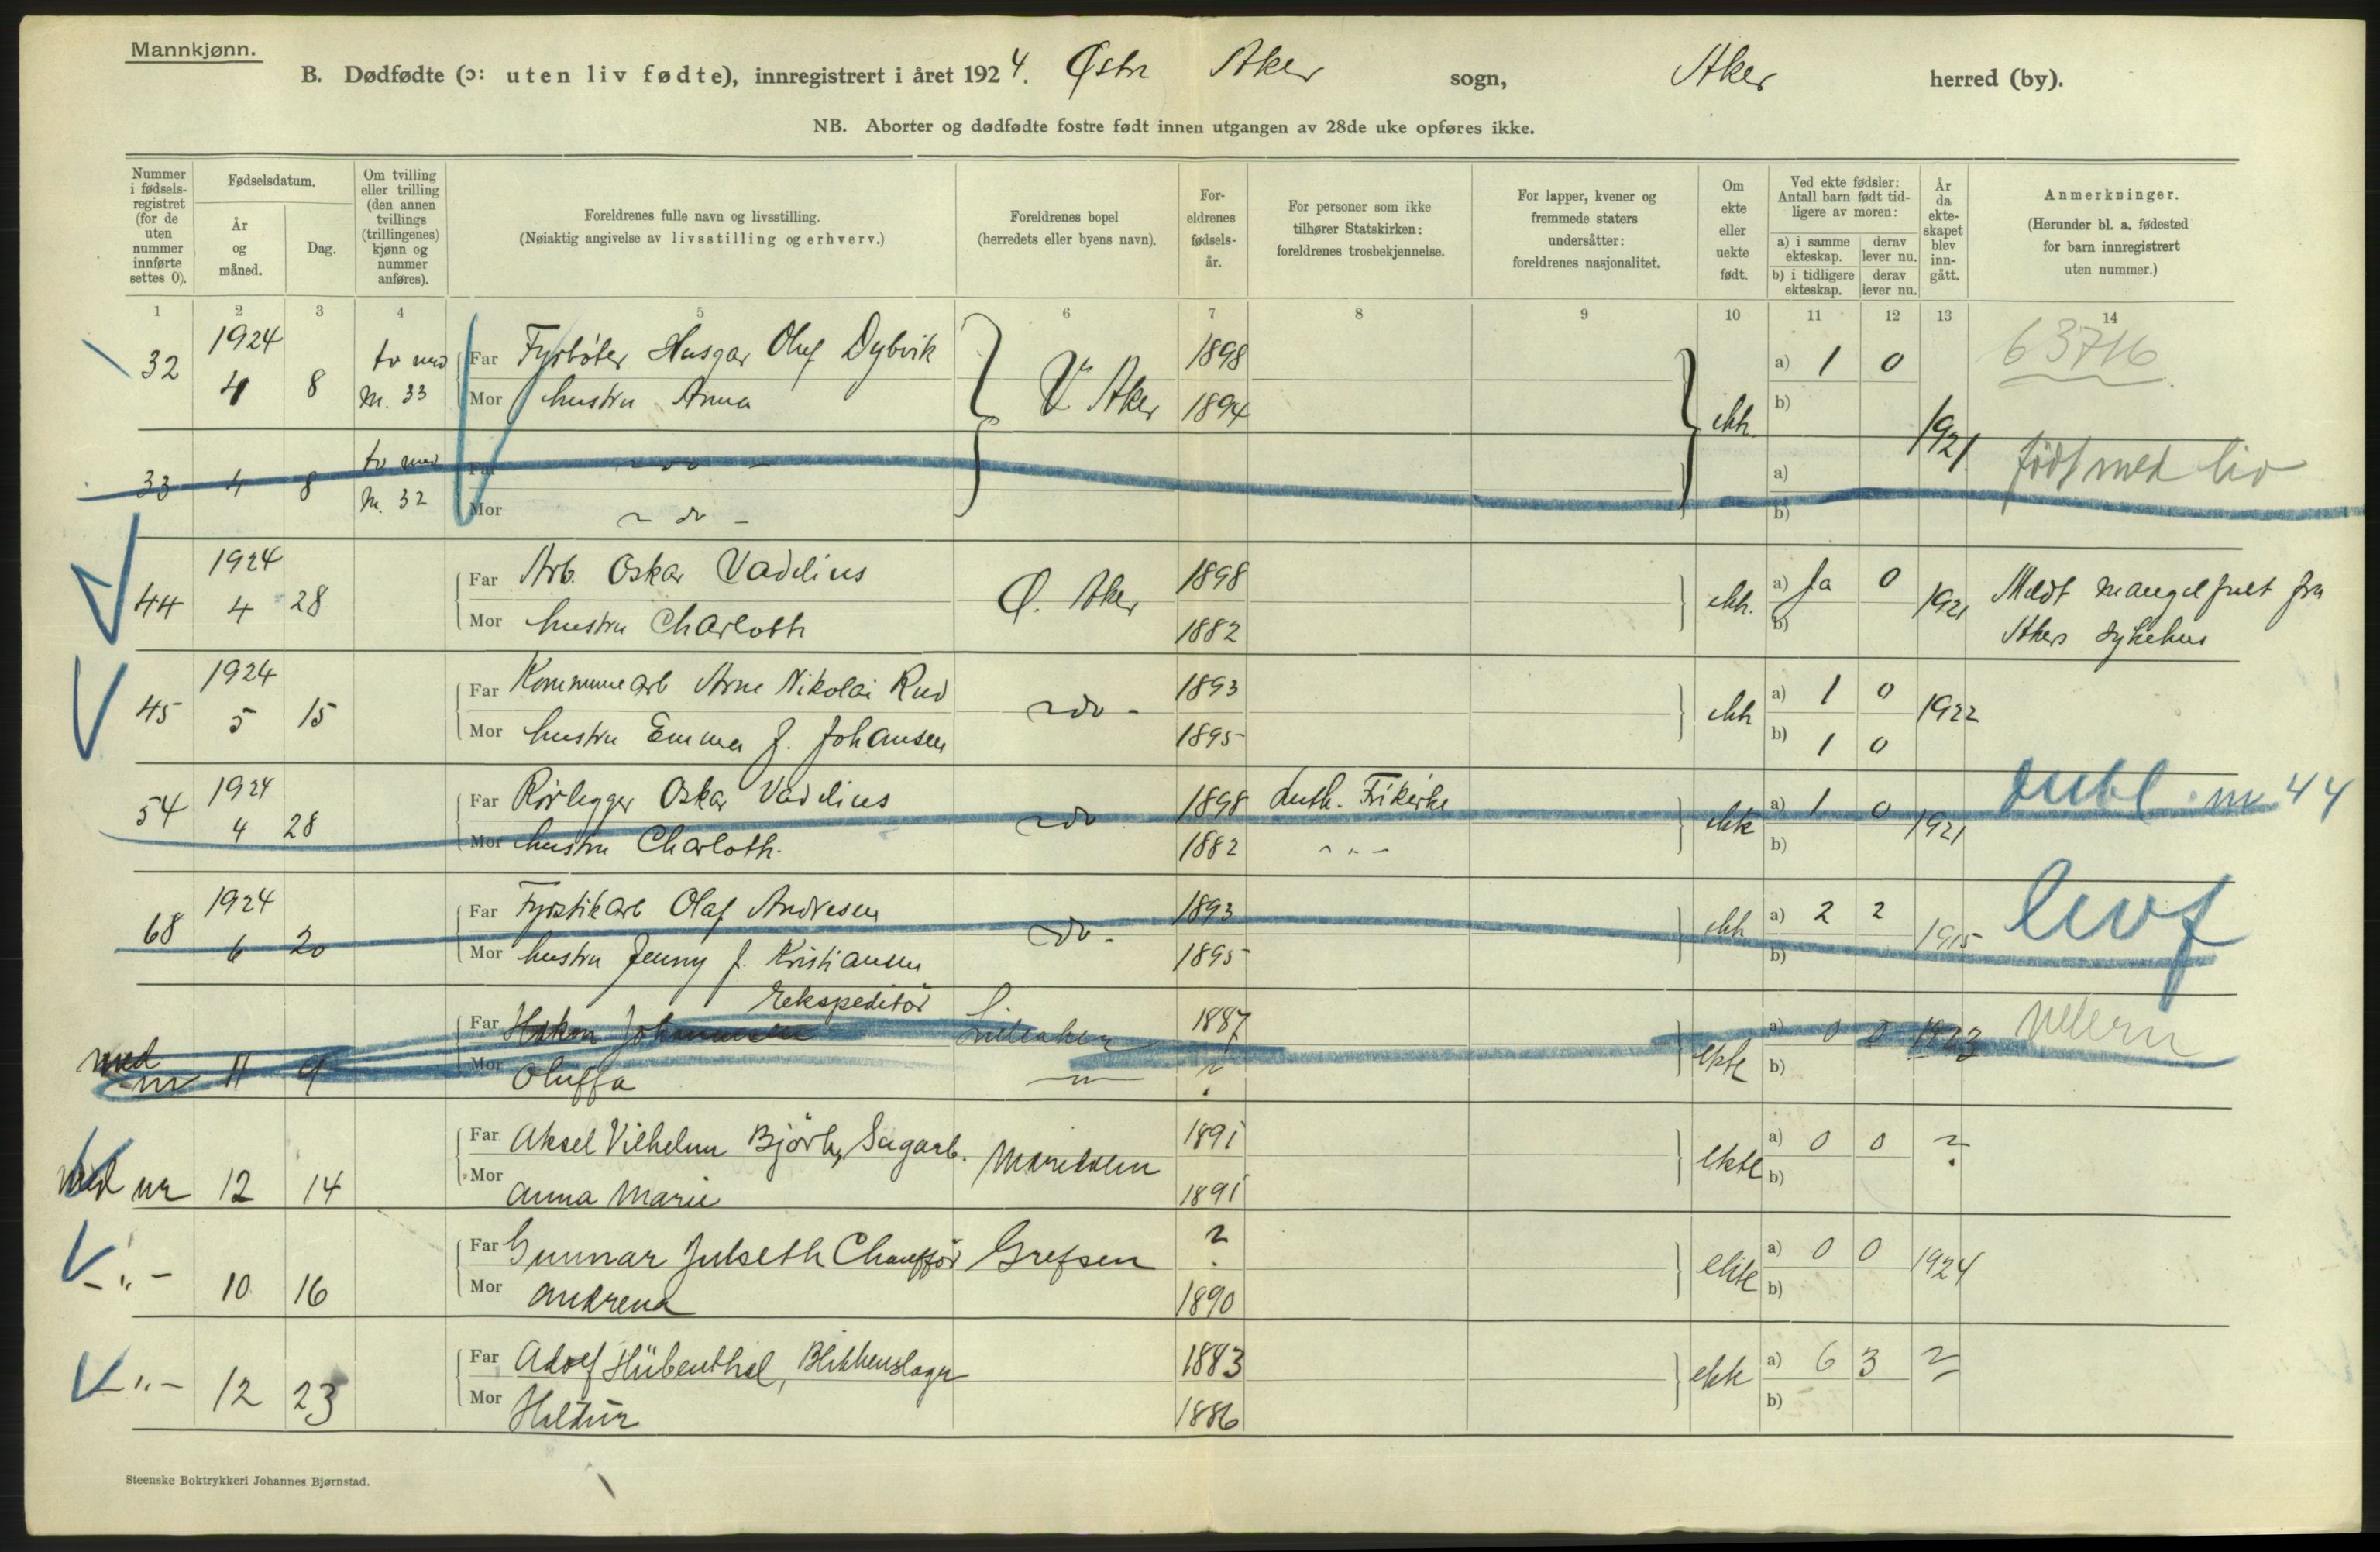 Mannkjønn.
B. Dødfødte (ɔ: uten liv fødte), innregistrert i året 1924. Østre Aker sogn, Aker herred (by).
NB. Aborter og dødfødte fostre født innen utgangen av 28de uke opføres ikke.
Nummer i fødsels-registret (for de uten nummer innførte settes 0).
Fødselsdatum.
År og måned.
Dag.
Om tvilling eller trilling (den annen tvillings (trillingenes) kjønn og nummer anføres).
Foreldrenes fulle navn og livsstilling.
(Nøiaktig angivelse av livsstilling og erhverv.)
Foreldrenes bopel
(herredets eller byens navn).
For-eldrenes fødsels-år.
For personer som ikke tilhører Statskirken: foreldrenes trosbekjennelse.
For lapper, kvener og fremmede staters undersåtter: foreldrenes nasjonalitet.
Om ekte eller uekte født.
Ved ekte fødsler: Antall barn født tid-ligere av moren:
a) i samme ekteskap.
derav lever nu.
b) i tidligere ekteskap.
derav lever nu.
År da ekte-skapet blev inn-gått.
Anmerkninger.
(Herunder bl. a. fødested for barn innregistrert uten nummer.)
1 2 3 4 5 6 7 8 9 10 11 12 13 14
32 1924 4 8 tv med M. 33
Far Fyrbøter Oluf Dybvik 1898 a) 1 0 63716
Mor hustru Anna V. Aker 1894 ekte b) 1921
33 4 8 tv med M. 32
Far - do - a) født med liv
Mor - do - b)
44 1924 4 28
Far Arb. Oskar Vadelius Ø. Aker 1898 a) Ja 0 1921 Meldt mangelfult fra
Mor hustru Charloth 1882 ekte. b) Akers sykehus
45 1924 5 15
Far Kommunearb Arne Nikolai Rud - do - 1893 ekte a) 1 0 1922
Mor hustru Emma f. Johansen 1895 b) 1 0
54 1924 4 28
Far Rørlegger Oskar Vadelius - do - 1898 Luth. Frikirke ekte a) 1 0 1921 dubl. nr 44
Mor hustru Charloth. 1882 - " - b)
68 1924 6 20
Far Fyrstikarb Olaf Andresen - do - 1893 ekte a) 2 2 1915 levf
Mor hustru Jenny f. Kristiansen 1895 b)
med nr 11 9
Far Håkon Johannesen Ekspeditør Lilleaker 1887 ekte a) 0 0 1923
Mor Oluffa - " - ? b)
med nr 12 14
Far Aksel Vilhelm Björk, Sagarb. Maridalen 1891 ekte a) 0 0 ?
Mor Anna Marie 1891 b)
- " - 10 16
Far Gunnar Julseth Chauffør Grefsen ? ekte a) 0 0 1924
Mor Andrena 1890 b)
- " - 12 23
Far Adolf Hübenthal, Blikkenslager 1883 ekte a) 6 3 ?
Mor 1886 b)
Steenske Boktrykkeri Johannes Bjørnstad.